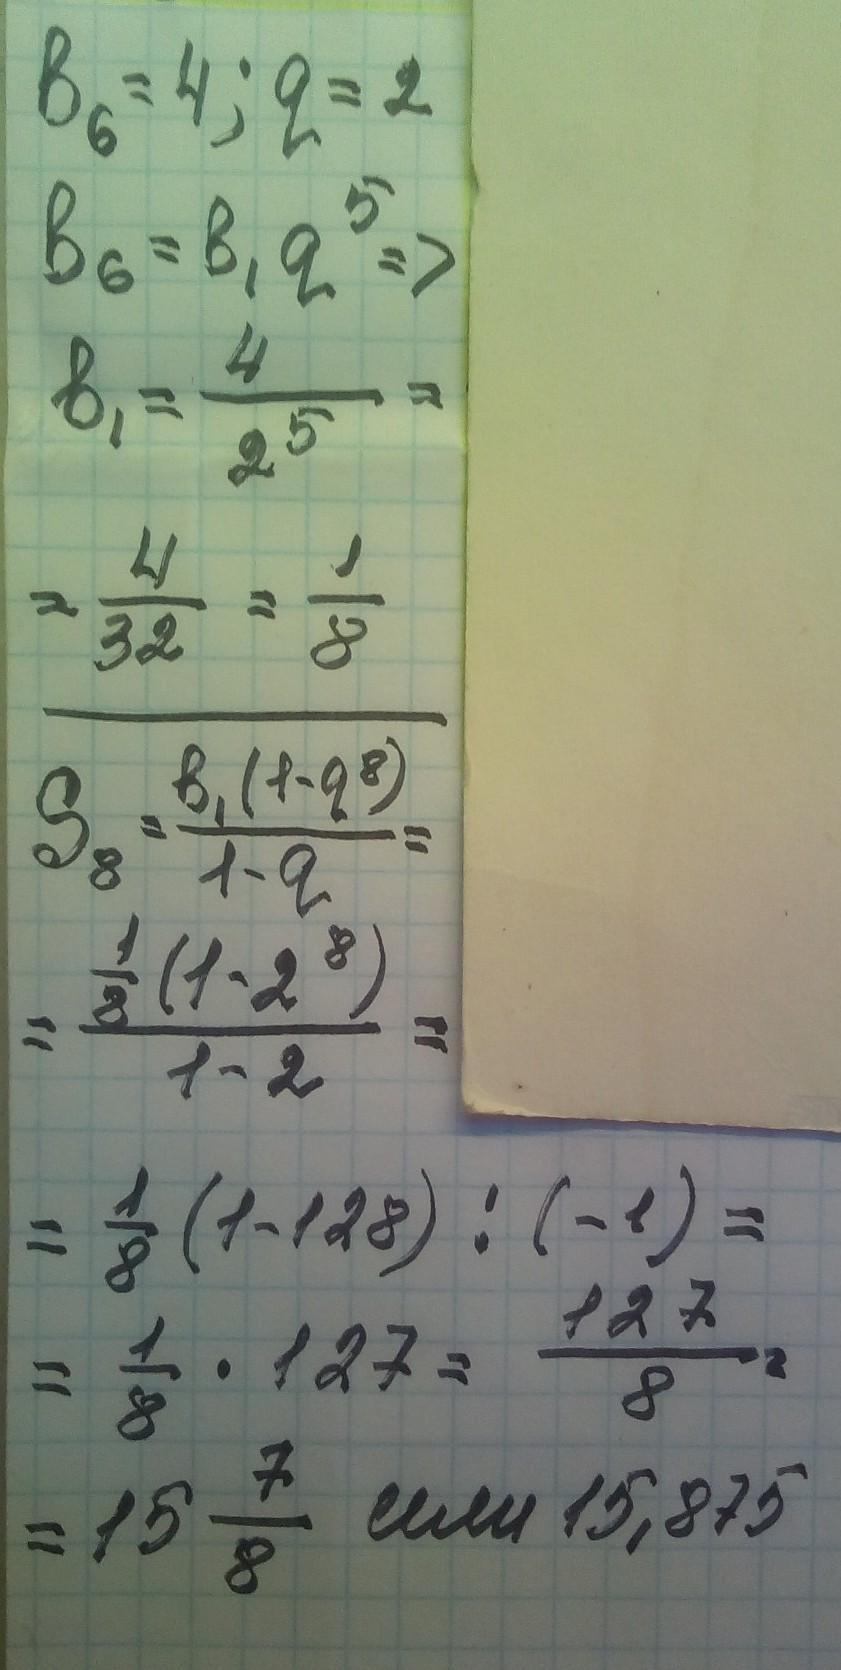 B₆ = 4; q = 2
B₆ = B₁ q⁵ =>
B₁ = 4/2⁵ =
= 4/32 = 1/8
S₈ = B₁(1-q⁸)/1-q =
= 1/8 (1-2⁸)/1-2 =
= 1/8 (1-128) : (-1) =
= 1/8 · 127 = 127/8 =
= 15 7/8 или 15,875